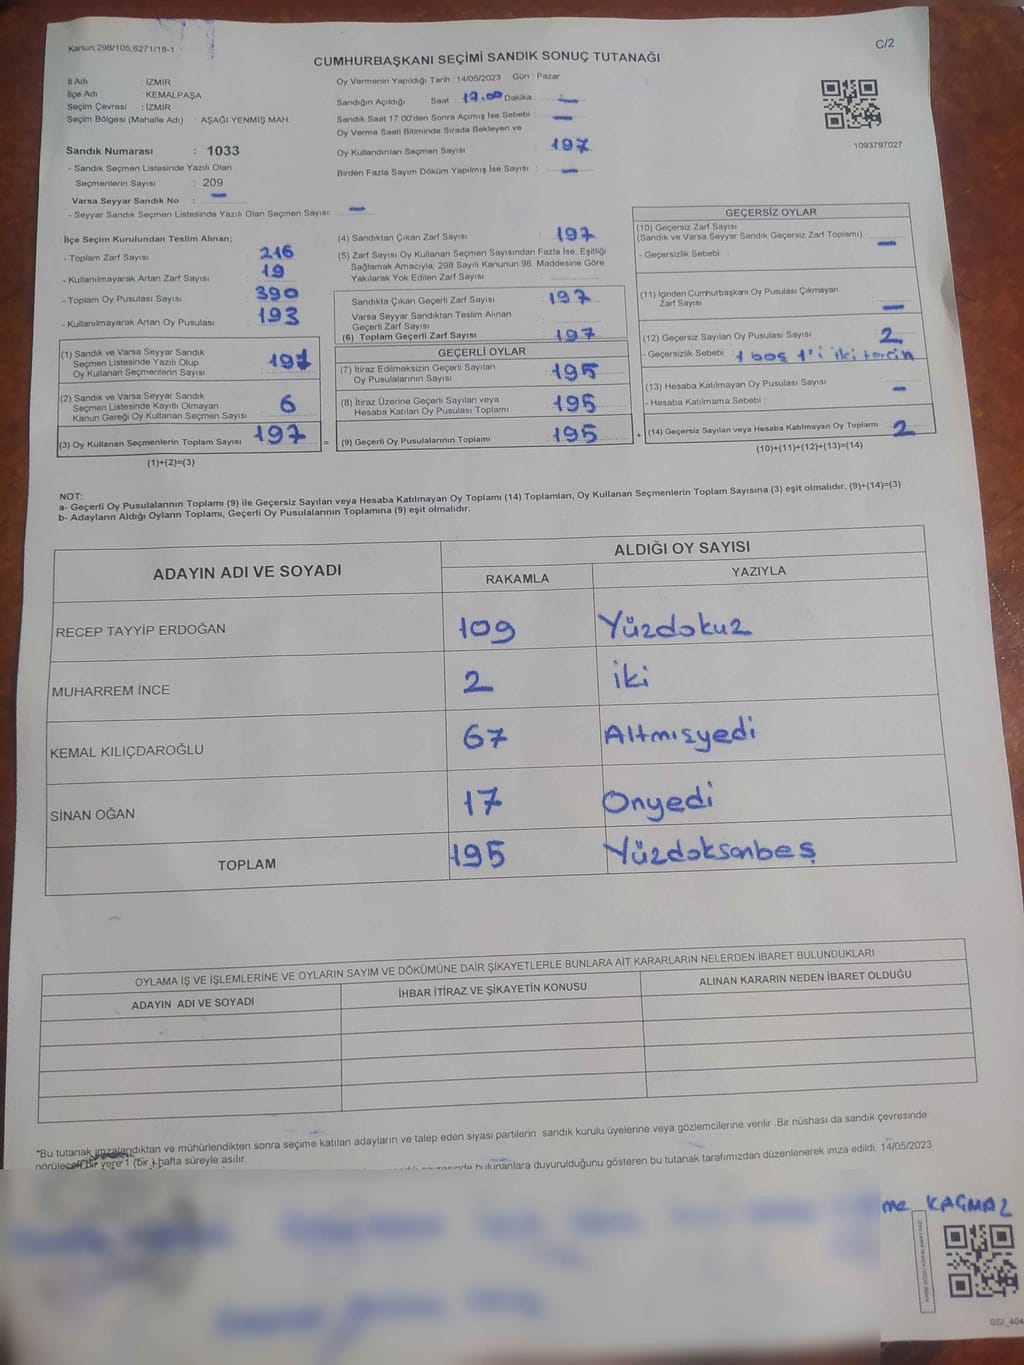 Kanun;298/105,6271/18-1
C/2
CUMHURBAŞKANI SEÇİMİ SANDIK SONUÇ TUTANAĞI
İl Adı : İZMİR
İlçe Adı : KEMALPAŞA
Seçim Çevresi : İZMİR
Seçim Bölgesi (Mahalle Adı) : AŞAĞI YENMİŞ MAH.
Oy Vermenin Yapıldığı Tarih : 14/05/2023 Gün : Pazar
Sandığın Açıldığı Saat : 17.00 Dakika : —
Sandık Saat 17.00'den Sonra Açımış İse Sebebi : —
Oy Verme Saati Bitiminde Sırada Bekleyen ve
Oy Kullandırılan Seçmen Sayısı : 197
Birden Fazla Sayım Döküm Yapılmış İse Sayısı : —
1093797027
Sandık Numarası : 1033
- Sandık Seçmen Listesinde Yazılı Olan
Seçmenlerin Sayısı : 209
Varsa Seyyar Sandık No : —
- Seyyar Sandık Seçmen Listesinde Yazılı Olan Seçmen Sayısı: —
İlçe Seçim Kurulundan Teslim Alınan;
- Toplam Zarf Sayısı : 216
- Kullanılmayarak Artan Zarf Sayısı : 19
- Toplam Oy Pusulası Sayısı : 390
- Kullanılmayarak Artan Oy Pusulası : 193
(1) Sandık ve Varsa Seyyar Sandık
Seçmen Listesinde Yazılı Olup
Oy Kullanan Seçmenlerin Sayısı : 191
(2) Sandık ve Varsa Seyyar Sandık
Seçmen Listesinde Kayıtlı Olmayan
Kanun Gereği Oy Kullanan Seçmen Sayısı : 6
(3) Oy Kullanan Seçmenlerin Toplam Sayısı : 197 =
(1)+(2)=(3)
(4) Sandıktan Çıkan Zarf Sayısı : 197
(5) Zarf Sayısı Oy Kullanan Seçmen Sayısından Fazla İse, Eşitliği
Sağlamak Amacıyla; 298 Sayılı Kanunun 98. Maddesine Göre
Yakılarak Yok Edilen Zarf Sayısı :
Sandıkta Çıkan Geçerli Zarf Sayısı : 197
Varsa Seyyar Sandıktan Teslim Alınan
Geçerli Zarf Sayısı :
(6) Toplam Geçerli Zarf Sayısı : 197
GEÇERLİ OYLAR
(7) İtiraz Edilmeksizin Geçerli Sayılan
Oy Pusulalarının Sayısı : 195
(8) İtiraz Üzerine Geçerli Sayılan veya
Hesaba Katılan Oy Pusulası Toplamı : 195
(9) Geçerli Oy Pusulalarının Toplamı : 195 +
GEÇERSİZ OYLAR
(10) Geçersiz Zarf Sayısı
(Sandık ve Varsa Seyyar Sandık Geçersiz Zarf Toplamı) : —
- Geçersizlik Sebebi :
(11) İçinden Cumhurbaşkanı Oy Pusulası Çıkmayan
Zarf Sayısı : —
(12) Geçersiz Sayılan Oy Pusulası Sayısı : 2
- Geçersizlik Sebebi : 1 boş 1'i iki tercin
(13) Hesaba Katılmayan Oy Pusulası Sayısı : —
- Hesaba Katılmama Sebebi :
(14) Geçersiz Sayılan veya Hesaba Katılmayan Oy Toplamı : 2
(10)+(11)+(12)+(13)=(14)
NOT:
a- Geçerli Oy Pusulalarının Toplamı (9) ile Geçersiz Sayılan veya Hesaba Katılmayan Oy Toplamı (14) Toplamları, Oy Kullanan Seçmenlerin Toplam Sayısına (3) eşit olmalıdır. (9)+(14)=(3)
b- Adayların Aldığı Oyların Toplamı, Geçerli Oy Pusulalarının Toplamına (9) eşit olmalıdır.
ADAYIN ADI VE SOYADI
ALDIĞI OY SAYISI
RAKAMLA YAZIYLA
RECEP TAYYİP ERDOĞAN 109 Yüzdokuz
MUHARREM İNCE 2 iki
KEMAL KILIÇDAROĞLU 67 Altmışyedi
SİNAN OĞAN 17 Onyedi
TOPLAM 195 Yüzdoksanbeş
OYLAMA İŞ VE İŞLEMLERİNE VE OYLARIN SAYIM VE DÖKÜMÜNE DAİR ŞİKAYETLERLE BUNLARA AİT KARARLARIN NELERDEN İBARET BULUNDUKLARI
ADAYIN ADI VE SOYADI İHBAR İTİRAZ VE ŞİKAYETİN KONUSU ALINAN KARARIN NEDEN İBARET OLDUĞU
*Bu tutanak imzalandıktan ve mühürlendikten sonra seçime katılan adayların ve talep eden siyasi partilerin sandık kurulu üyelerine veya gözlemcilerine verilir .Bir nüshası da sandık çevresinde
görülecek bir yere 1 (bir ) hafta süreyle asılır.
bulunanlara duyurulduğunu gösteren bu tutanak tarafımızdan düzenlenerek imza edildi. 14/05/2023
me KAÇMAZ
SSI_404